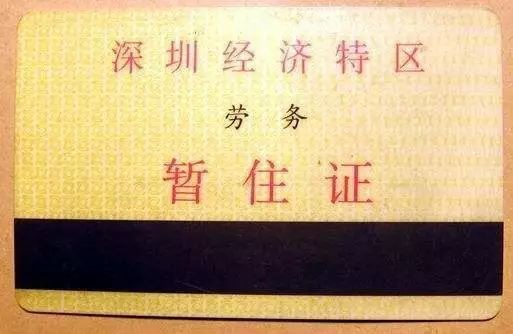 深圳经济特区
劳务
暂住证